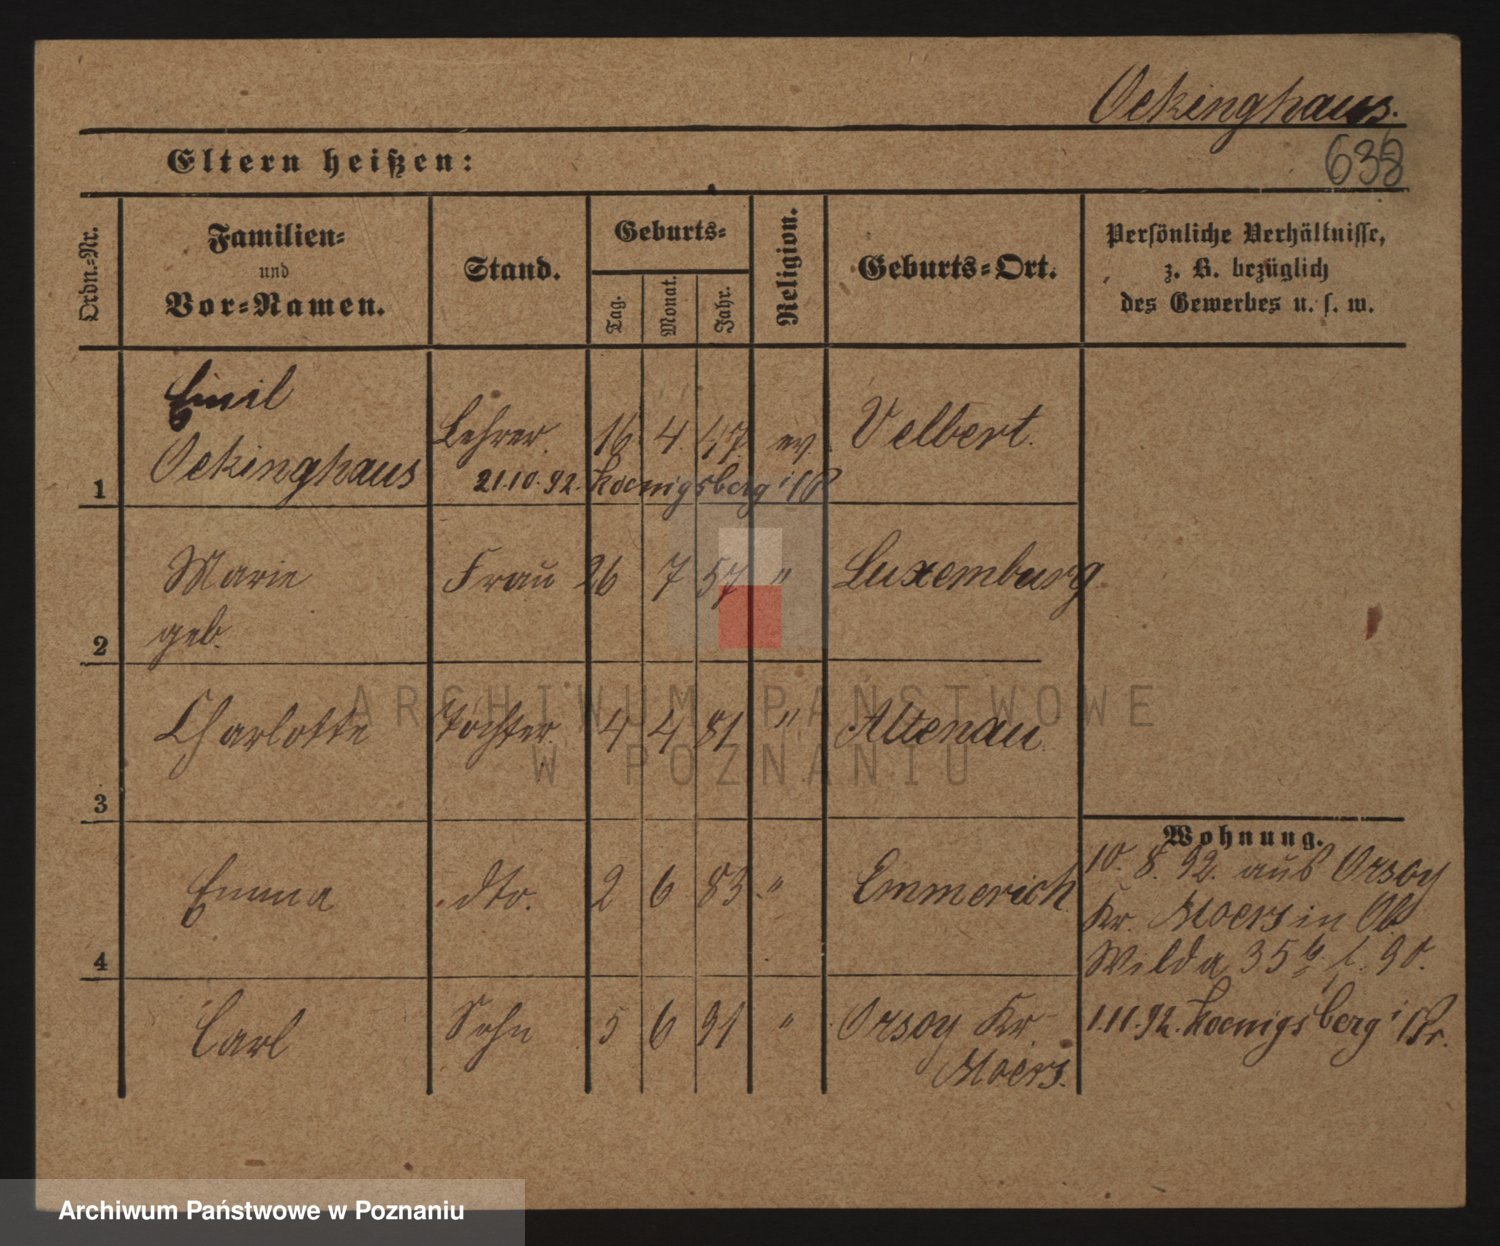 Oekinghaus.
638
Eltern heißen:
Ordn.-Nr.
Familien-
und
Vor-Namen.
Stand.
Geburts-
Tag.
Monat.
Jahr.
Religion.
Geburts-Ort.
Persönliche Verhältnisse,
z. B. bezüglich
des Gewerbes u. s. w.
1
Emil
Oekinghaus
Lehrer. 16. 4. 47. ev. Velbert.
21.10.92. Koenigsberg i/P
2
Marie
geb.
Frau 26 7 57 " Luxemburg
3
Charlotte Tochter 4 4 81 " Altenau.
4
Emma dto. 2 6 83 " Emmerich.
Carl Sohn 5 6 91 " Orsoy Kr
Moers.
Wohnung.
10. 8. 92. aus Orsoy
Kr. Moers in Ob
Wilda 35
1.11.92. Koenigsberg i Pr.
ARCHIWUM PAŃSTWOWE
W POZNANIU
Archiwum Państwowe w Poznaniu